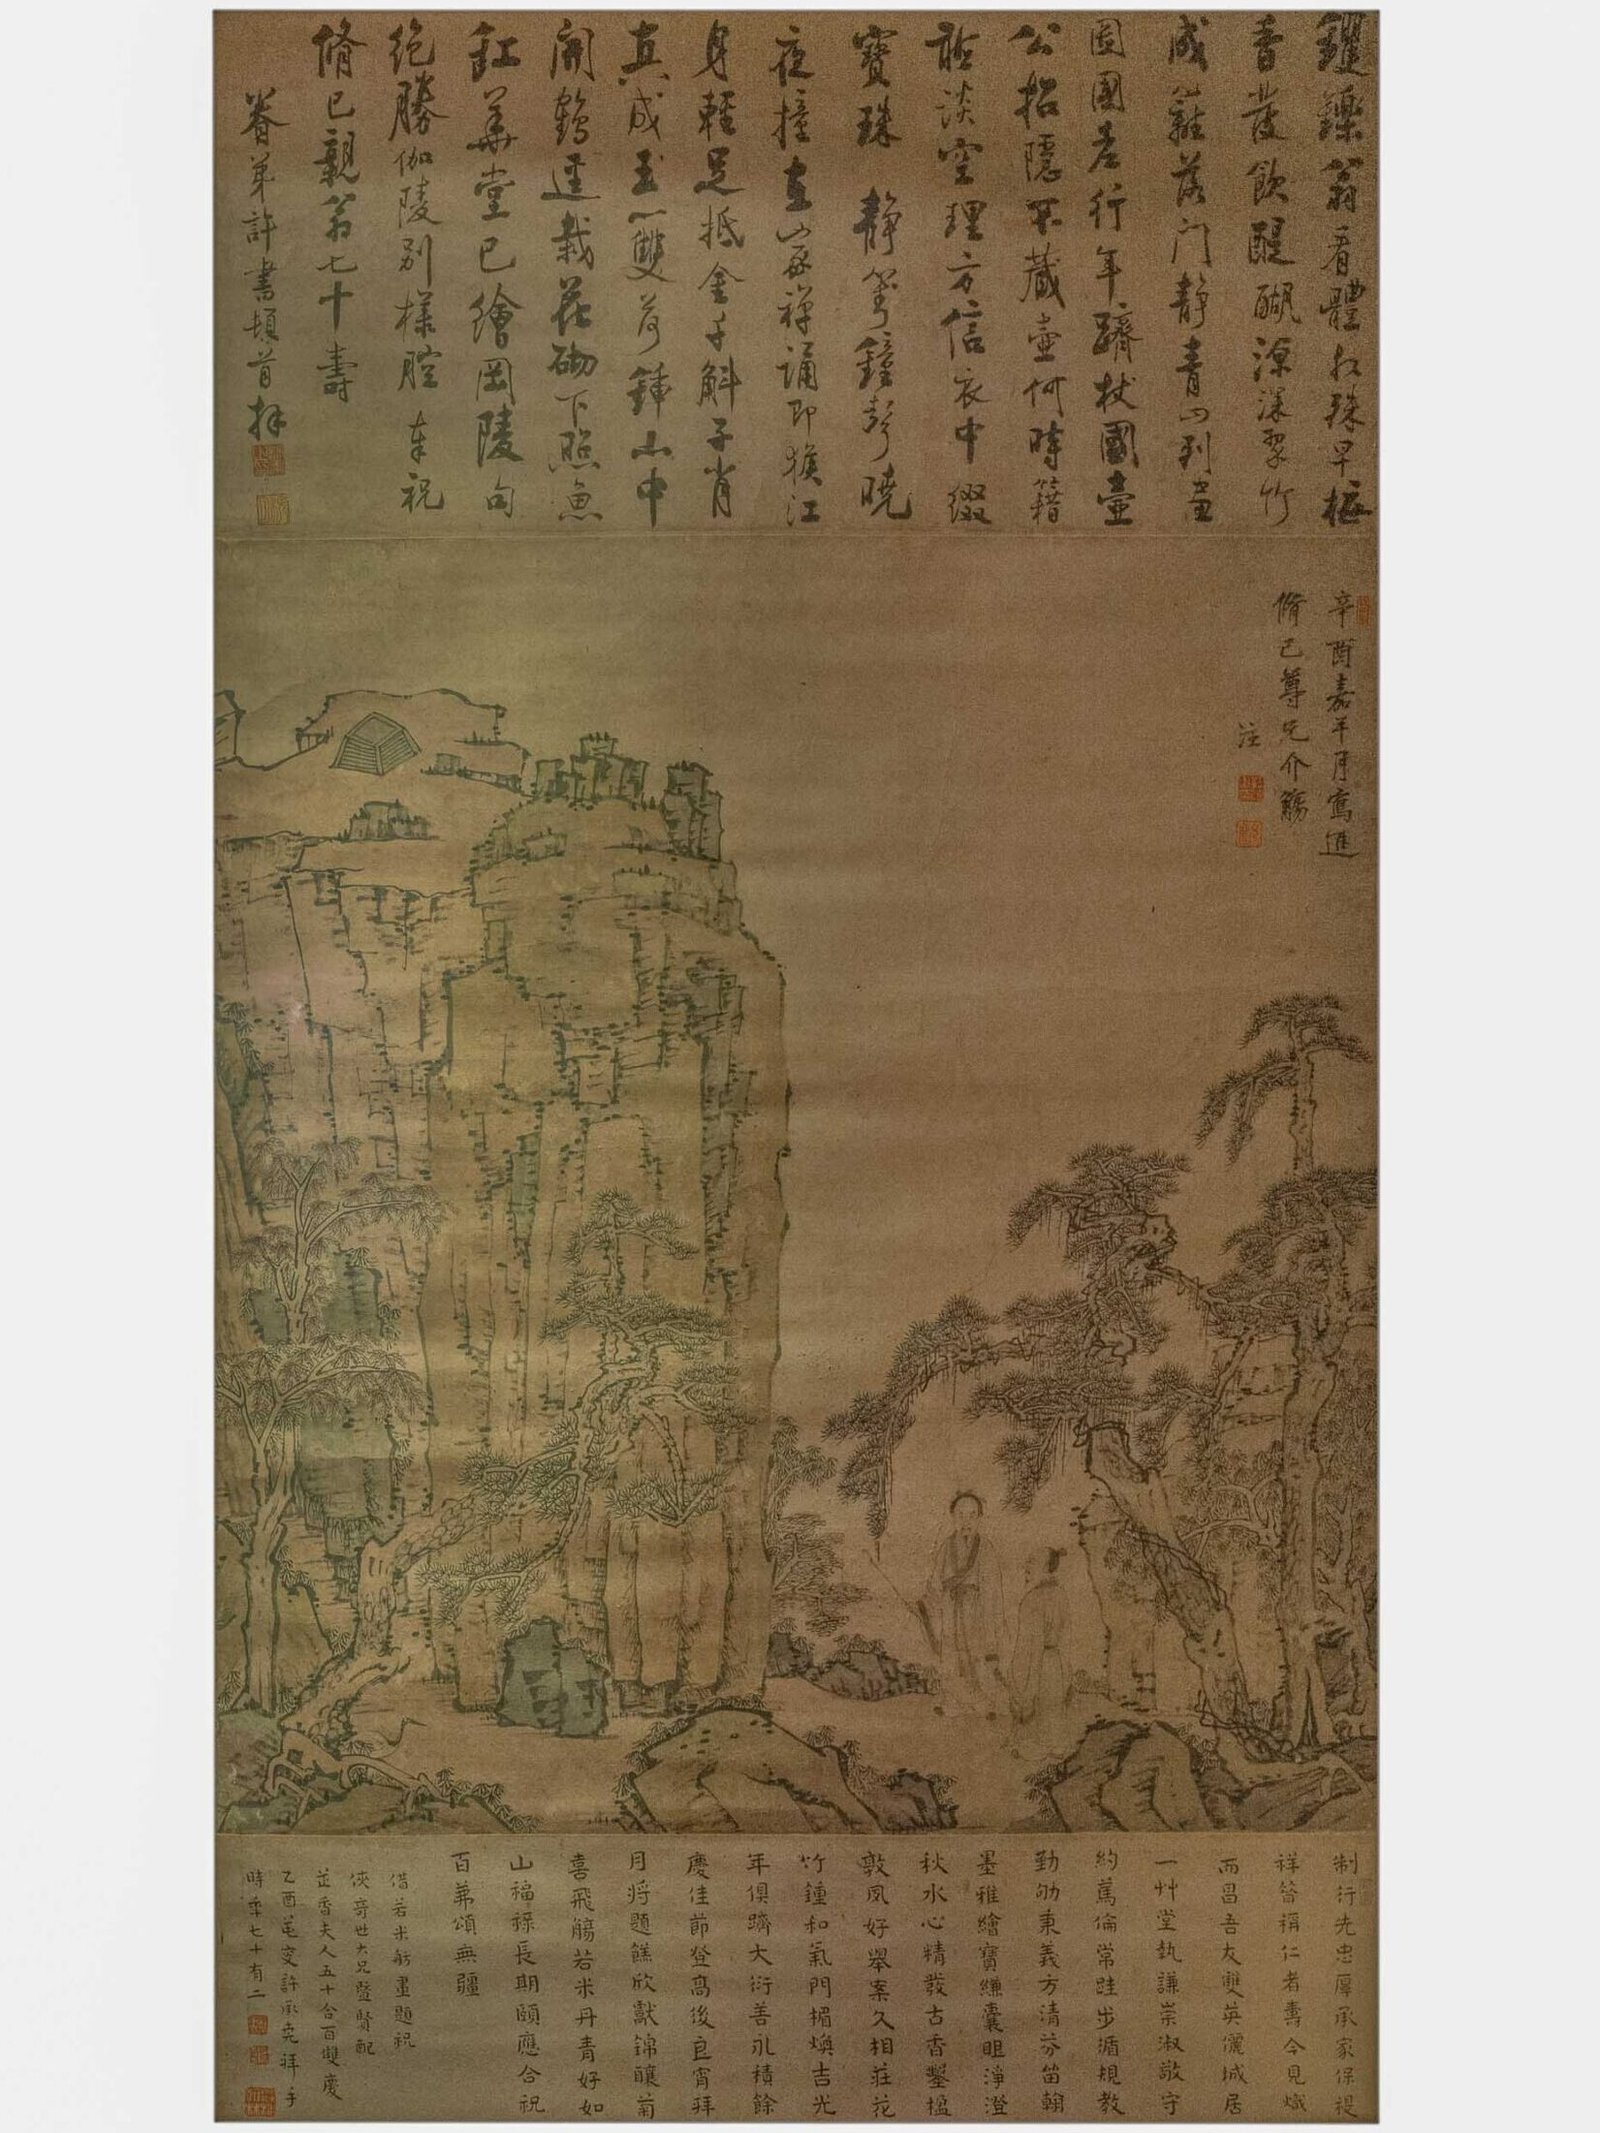 矍鑠翁看體力殊早梅
香發飲醍醐源深翠竹
成叢落門靜青山列畫
圖國老行年躋杖國壺
公招隱不藏壺何時籍
酤談空理方信衣中綴
寶珠 靜箏鐘聲曉
夜撞
禪誦即猴江
身輕足抵金千斛子肖
真成玉一雙荷鍤山中
開鶴逕栽花砌下照魚
缸華堂已繪岡陵句
絶勝伽陵別樣腔 奉祝
脩己親翁七十壽
眷弟許書頓首拜
辛酉嘉平月寫進
脩己尊兄介觴
注
制行先忠厚承家保禔
祥答稱仁者壽今見熾
而昌吾友雙英儷城居
一艸堂執謙崇淑敬守
約篤倫常跬步循規教
勤劬秉義方清芬笛翰
墨雅繪寶縑囊眼淨澄
秋水心精發古香鑿楹
敦夙好舉案久相莊花
竹鍾和氣門楣煥吉光
年俱躋大衍善永積餘
慶佳節登高後良宵拜
月將題餻欣獻錦釀菊
喜飛觴若米丹青好如
山福祿長期頤應合祝
百苐頌無疆
借若米舫畫題祝
俠哥世大兄暨賢配
並香夫人五十合百雙慶
乙酉 許承堯拜手
時年七十有二